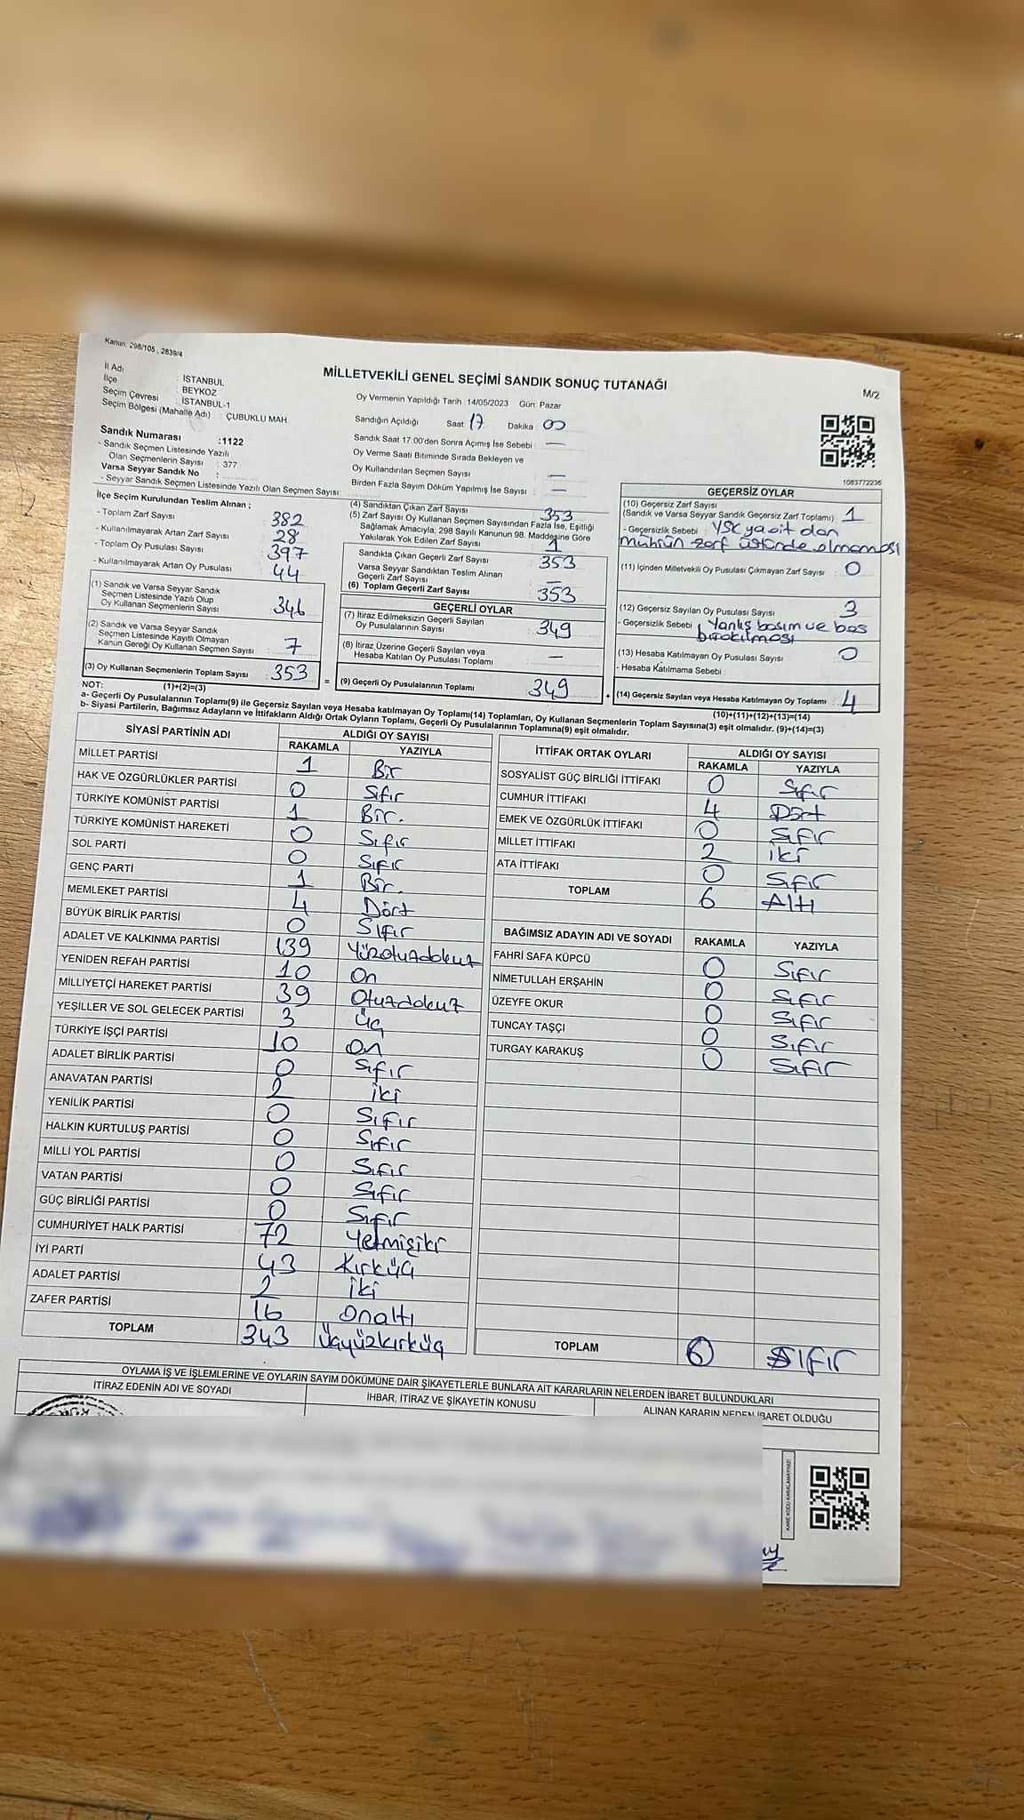 Kanun: 298/105, 2839/4
MİLLETVEKİLİ GENEL SEÇİMİ SANDIK SONUÇ TUTANAĞI
M/2
İl Adı İSTANBUL
İlçe BEYKOZ
Seçim Çevresi İSTANBUL-1
Seçim Bölgesi (Mahalle Adı) ÇUBUKLU MAH
Sandık Numarası :1122
- Sandık Seçmen Listesinde Yazılı
Olan Seçmenlerin Sayısı : 377
Varsa Seyyar Sandık No :
- Seyyar Sandık Seçmen Listesinde Yazılı Olan Seçmen Sayısı :
Oy Vermenin Yapıldığı Tarih :14/05/2023 Gün: Pazar
Sandığın Açıldığı Saat 17 Dakika 00
Sandık Saat 17.00'den Sonra Açımış İse Sebebi —
Oy Verme Saati Bitiminde Sırada Bekleyen ve
Oy Kullandırılan Seçmen Sayısı —
Birden Fazla Sayım Döküm Yapılmış İse Sayısı —
1083772236
İlçe Seçim Kurulundan Teslim Alınan ;
- Toplam Zarf Sayısı 382
- Kullanılmayarak Artan Zarf Sayısı 28
- Toplam Oy Pusulası Sayısı 397
- Kullanılmayarak Artan Oy Pusulası 44
(1) Sandık ve Varsa Seyyar Sandık
Seçmen Listesinde Yazılı Olup
Oy Kullanan Seçmenlerin Sayısı 346
(2) Sandık ve Varsa Seyyar Sandık
Seçmen Listesinde Kayıtlı Olmayan
Kanun Gereği Oy Kullanan Seçmen Sayısı 7
(3) Oy Kullanan Seçmenlerin Toplam Sayısı 353
(1)+(2)=(3)
(4) Sandıktan Çıkan Zarf Sayısı 353
(5) Zarf Sayısı Oy Kullanan Seçmen Sayısından Fazla İse, Eşitliği
Sağlamak Amacıyla, 298 Sayılı Kanunun 98. Maddesine Göre
Yakılarak Yok Edilen Zarf Sayısı 1
Sandıkta Çıkan Geçerli Zarf Sayısı 353
Varsa Seyyar Sandıktan Teslim Alınan
Geçerli Zarf Sayısı —
(6) Toplam Geçerli Zarf Sayısı 353
GEÇERLİ OYLAR
(7) İtiraz Edilmeksizin Geçerli Sayılan
Oy Pusulalarının Sayısı 349
(8) İtiraz Üzerine Geçerli Sayılan veya
Hesaba Katılan Oy Pusulası Toplamı —
= (9) Geçerli Oy Pusulalarının Toplamı 349 +
GEÇERSİZ OYLAR
(10) Geçersiz Zarf Sayısı
(Sandık ve Varsa Seyyar Sandık Geçersiz Zarf Toplamı) 1
- Geçersizlik Sebebi YSK ya ait olan
mührün zarf üstünde olmaması
(11) İçinden Milletvekili Oy Pusulası Çıkmayan Zarf Sayısı 0
(12) Geçersiz Sayılan Oy Pusulası Sayısı 3
- Geçersizlik Sebebi Yanlış basım ve boş
bırakılması
(13) Hesaba Katılmayan Oy Pusulası Sayısı 0
- Hesaba Katılmama Sebebi
(14) Geçersiz Sayılan veya Hesaba Katılmayan Oy Toplamı 4
(10)+(11)+(12)+(13)=(14)
NOT:
a- Geçerli Oy Pusulalarının Toplamı(9) ile Geçersiz Sayılan veya Hesaba Katılmayan Oy Toplamı(14) Toplamları, Oy Kullanan Seçmenlerin Toplam Sayısına(3) eşit olmalıdır. (9)+(14)=(3)
b- Siyasi Partilerin, Bağımsız Adayların ve İttifakların Aldığı Ortak Oyların Toplamı, Geçerli Oy Pusulalarının Toplamına(9) eşit olmalıdır.
SİYASİ PARTİNİN ADI ALDIĞI OY SAYISI
RAKAMLA YAZIYLA
MİLLET PARTİSİ 1 Bir
HAK VE ÖZGÜRLÜKLER PARTİSİ 0 Sıfır
TÜRKİYE KOMÜNİST PARTİSİ 1 Bir.
TÜRKİYE KOMÜNİST HAREKETİ 0 Sıfır
SOL PARTİ 0 Sıfır
GENÇ PARTİ 1 Bir.
MEMLEKET PARTİSİ 4 Dört
BÜYÜK BİRLİK PARTİSİ 0 Sıfır
ADALET VE KALKINMA PARTİSİ 139 Yüzotuzdokuz
YENİDEN REFAH PARTİSİ 10 On
MİLLİYETÇİ HAREKET PARTİSİ 39 Otuzdokuz
YEŞİLLER VE SOL GELECEK PARTİSİ 3 Üç
TÜRKİYE İŞÇİ PARTİSİ 10 On
ADALET BİRLİK PARTİSİ 0 Sıfır
ANAVATAN PARTİSİ 2 İki
YENİLİK PARTİSİ 0 Sıfır
HALKIN KURTULUŞ PARTİSİ 0 Sıfır
MİLLİ YOL PARTİSİ 0 Sıfır
VATAN PARTİSİ 0 Sıfır
GÜÇ BİRLİĞİ PARTİSİ 0 Sıfır
CUMHURİYET HALK PARTİSİ 72 Yetmişiki
İYİ PARTİ 43 Kırküç
ADALET PARTİSİ 2 İki
ZAFER PARTİSİ 16 Onaltı
TOPLAM 343 Üçyüzkırküç
İTTİFAK ORTAK OYLARI ALDIĞI OY SAYISI
RAKAMLA YAZIYLA
SOSYALİST GÜÇ BİRLİĞİ İTTİFAKI 0 Sıfır
CUMHUR İTTİFAKI 4 Dört
EMEK VE ÖZGÜRLÜK İTTİFAKI 0 Sıfır
MİLLET İTTİFAKI 2 İki
ATA İTTİFAKI 0 Sıfır
TOPLAM 6 Altı
BAĞIMSIZ ADAYIN ADI VE SOYADI RAKAMLA YAZIYLA
FAHRİ SAFA KÜPCÜ 0 Sıfır
NİMETULLAH ERŞAHİN 0 Sıfır
ÜZEYFE OKUR 0 Sıfır
TUNCAY TAŞÇİ 0 Sıfır
TURGAY KARAKUŞ 0 Sıfır
TOPLAM 0 Sıfır
OYLAMA İŞ VE İŞLEMLERİNE VE OYLARIN SAYIM DÖKÜMÜNE DAİR ŞİKAYETLERLE BUNLARA AİT KARARLARIN NELERDEN İBARET BULUNDUKLARI
İTİRAZ EDENİN ADI VE SOYADI İHBAR, İTİRAZ VE ŞİKAYETİN KONUSU ALINAN KARARIN NEDEN İBARET OLDUĞU